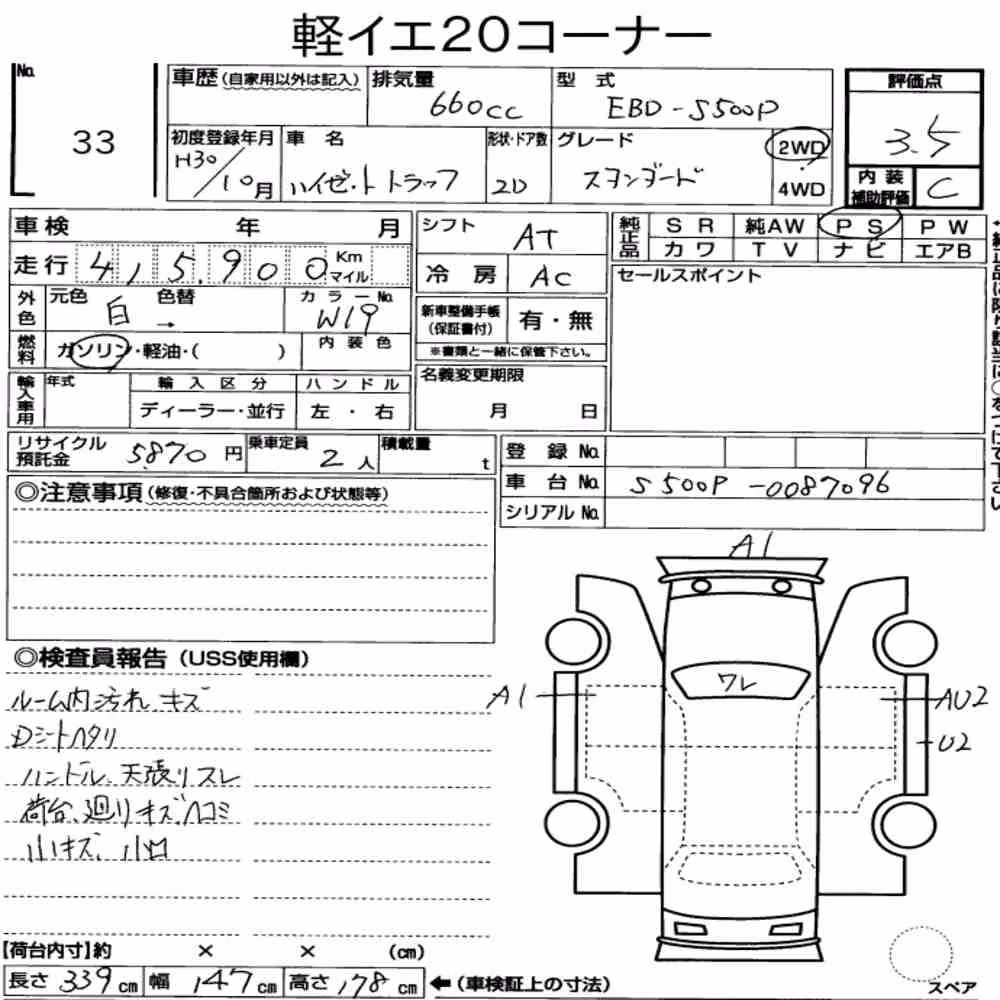 軽イエ20コーナー
No. 33
車歴(自家用以外は記入) 排気量 660cc 型式 EBD-S500P 評価点 3.5
初度登録年月 H30/10月 車名 ハイゼットトラック 形状・ドア数 2D グレード スタンダード 2WD 4WD
内装補助評価 C
車検 年 月 シフト AT 純正品 SR 純AW PS PW
カワ TV ナビ エアB
走行 41,5,900 Km マイル 冷房 AC セールスポイント
外色 元色 白 色替 → カラーNo. W19 新車整備手帳(保証書付) 有・無
※書類と一緒に保管下さい。
燃料 ガソリン・軽油・( ) 内装色
名義変更期限 月 日
輸入車用 年式 輸入区分 ハンドル
ディーラー・並行 左・右
リサイクル預託金 5,870円 乗車定員 2人 積載量 t 登録No.
車台No. S500P-0087096
シリアルNo.
◎注意事項(修復・不具合箇所および状態等)
A1
◎検査員報告(USS使用欄)
ワレ
A1 AU2
U2
ルーム内汚れ キズ
Dシートヘタリ
ハンドル、天張りスレ
荷台、廻りキズ、ヘコミ
小キズ、小凹
【荷台内寸】約 × × (cm)
長さ 339cm 幅 147cm 高さ 178cm ←(車検証上の寸法)
スペア